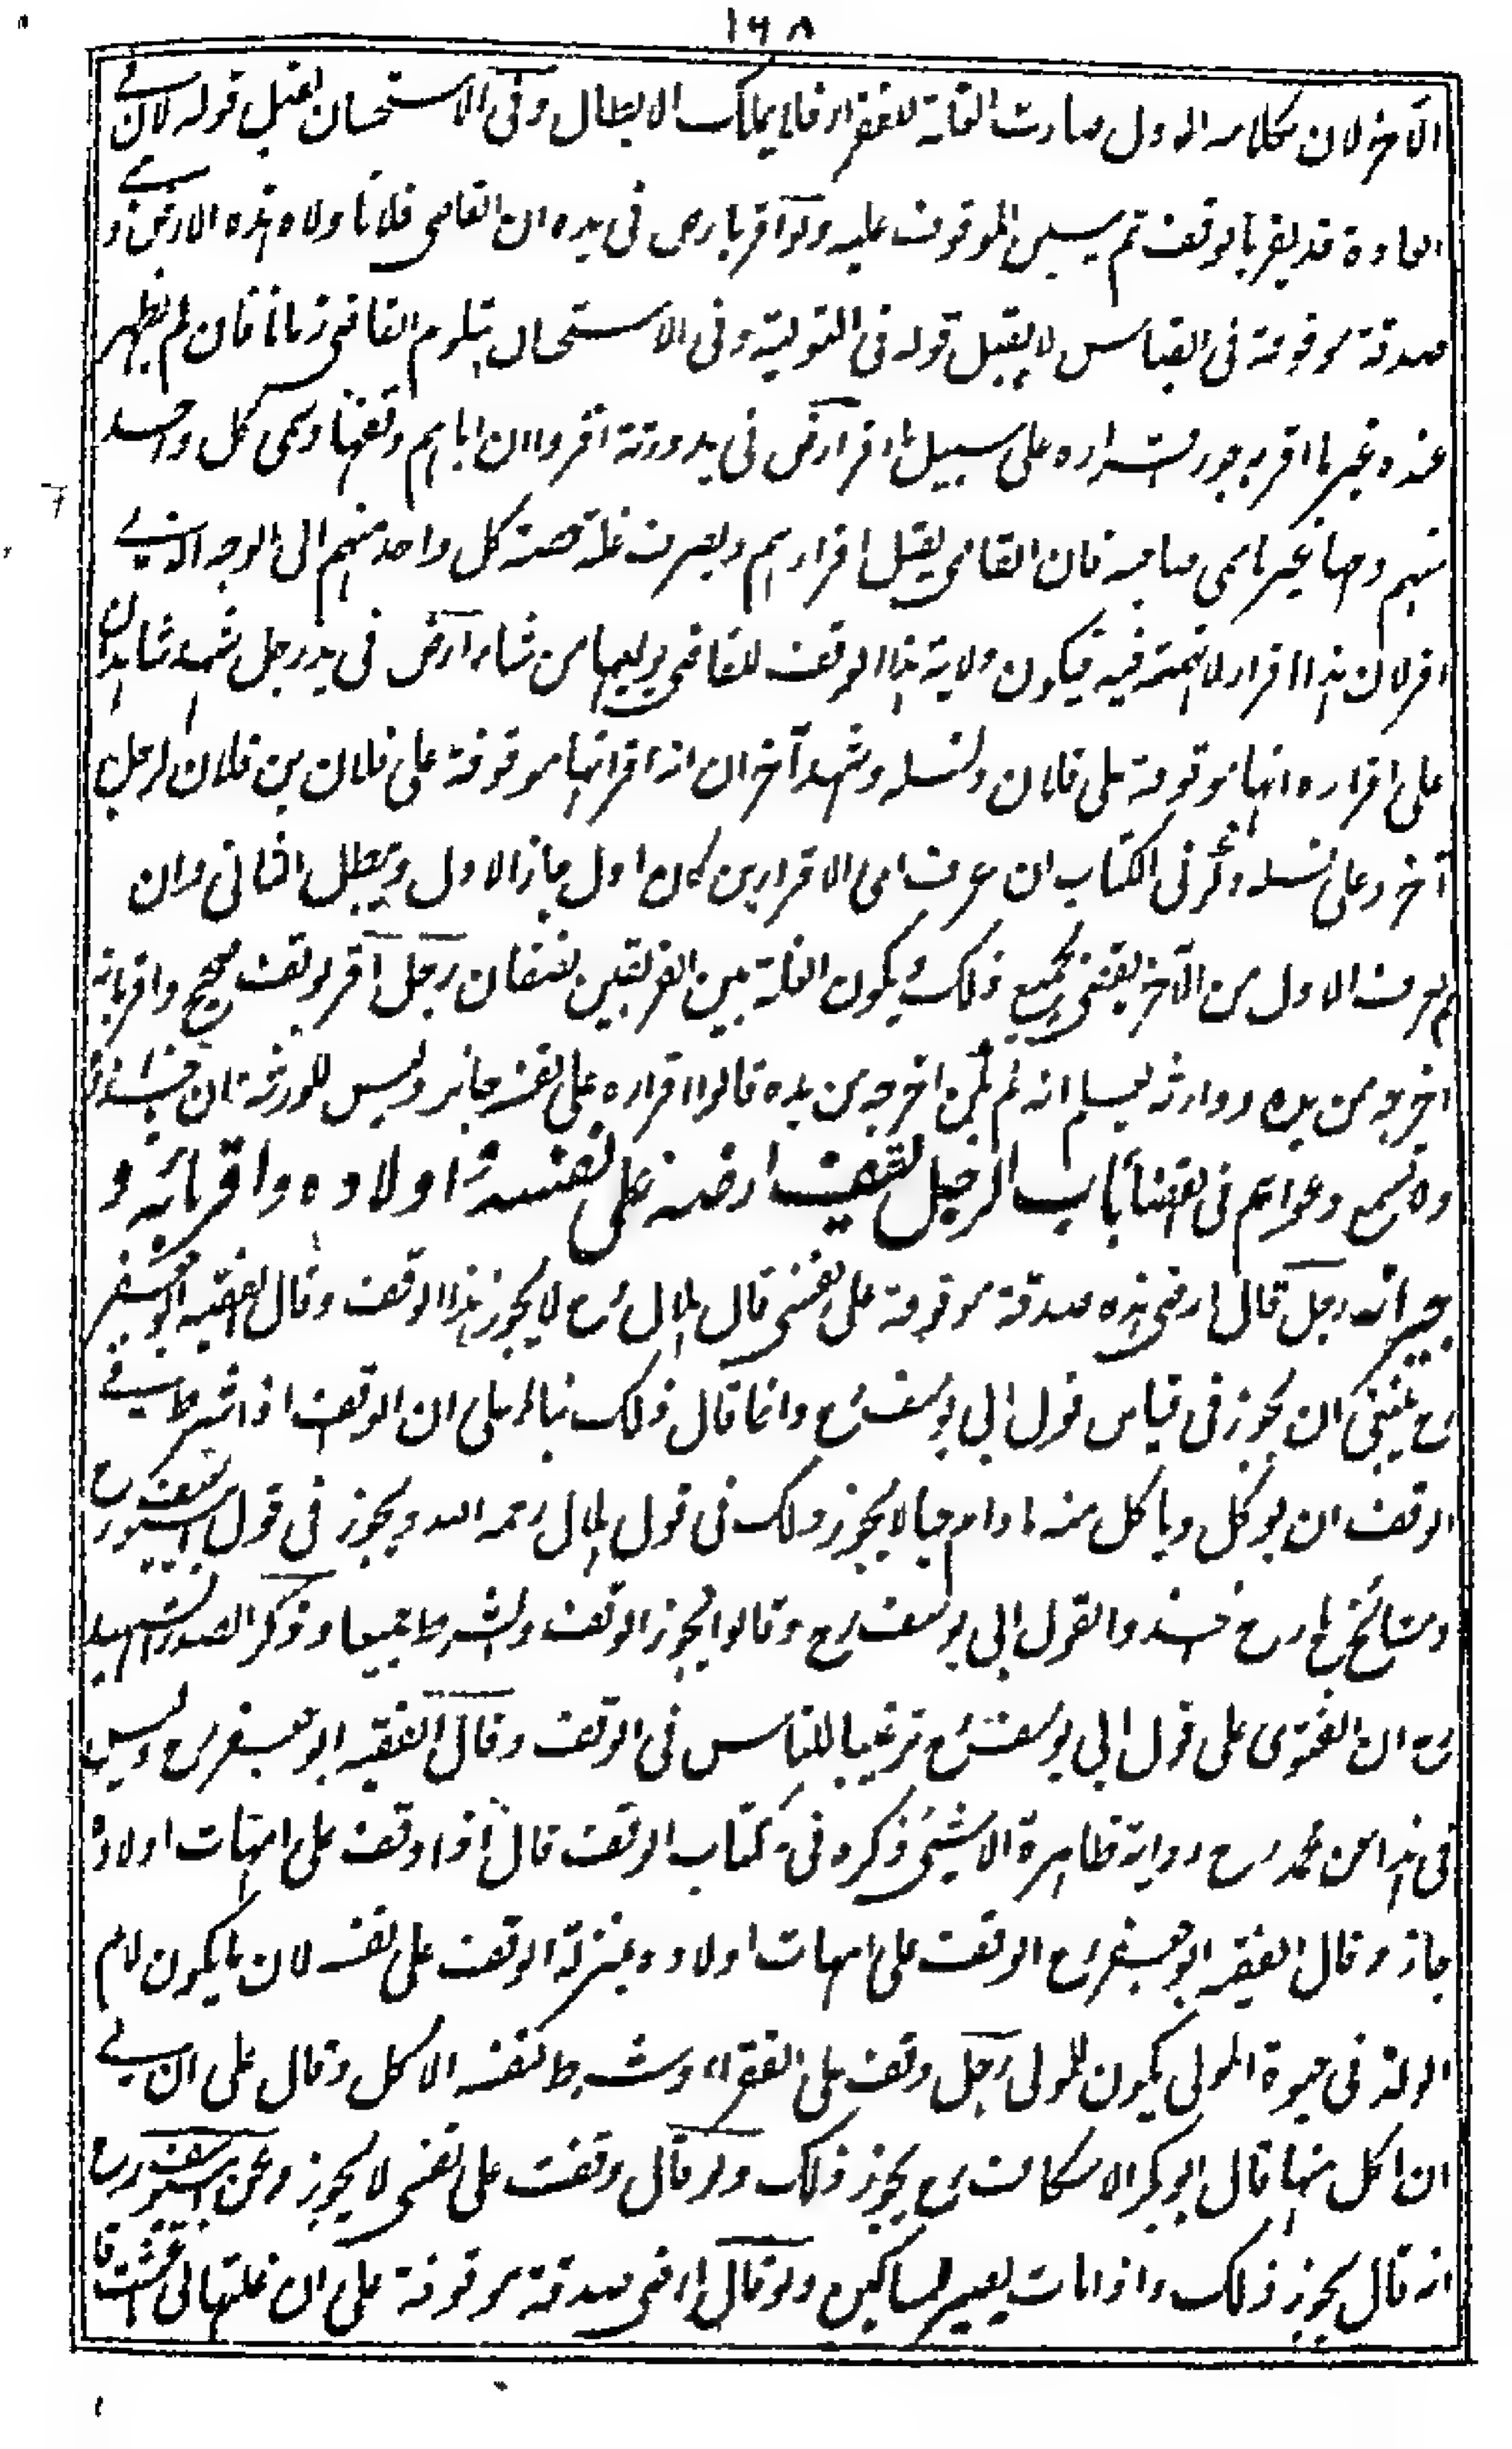 ١٦٨
الآخر لان بكلامه الاول صارت الغلة للفقراء فلا يملك الابطال وفى الاستحسان يقبل قوله لان فے
العادة قد يقر بالوقف ثم يبين الموقوف عليه ولو اقر بارض فى يده ان القاضى فلانا ولاه هذه الارض و هے
صدقة موقوفة فى القياس لا يقبل قوله فى التولية وفى الاستحسان يتلوم القاضى زمانا فان لم يظهر
عنده غير ما اقر به جوز اقراره على سبيل ما اقر ارض فى يد ورثة اقروا ان اباهم وقفها وسمى كل واحد
منهم وجها غير ما سمى صاحبه فان القاضى يقبل اقرارهم ويصرف غلة حصة كل واحد منهم الى الوجه الذے
اقر لان هذا اقرار لا تهمة فيه فيكون ولاية هذا الوقف للقاضى يوليها من شاء ارض فى يد رجل شهد شاهدان
على اقراره انها موقوفة على فلان ونسله وشهد آخران انه اقر انها موقوفة على فلان بن فلان لرجل
آخر وعلى نسله ذكر فى الكتاب ان عرف اى الاقرارين كان اول جاز الاول ويبطل الثانى وان
لم يعرف الاول من الآخر يقضى بجميع ذلك ويكون الغلة بين الفريقين نصفان رجل اقر بوقف صحيح واقر بانه
اخرجه من يده ووارثه يعلم انه لم يكن اخرجه من يده قالوا اقراره على نفسه جائز وليس للورثة ان
ولا تسمع دعواهم فى القضاء باب الرجل يقف ارضه على نفسه او اولاده واقربائه و
جيرانه رجل قال ارضى هذه صدقة موقوفة على نفسى قال هلال رح لا يجوز هذا الوقف وقال الفقيه ابو جعفر
رح ينبغى ان يجوز فى قياس قول ابى يوسف رح وانما قال ذلك بناء على ان الوقف اذا شرط فے
الوقف ان يوكل وياكل منه ما دام حيا لا يجوز ذلك فى قول هلال رحمه الله ويجوز فى قول ابى يوسف رح
ومشائخ بلخ رح اخذوا بقول ابى يوسف رح وقالوا يجوز الوقف والشرط جميعا وذكر الصدر الشهيد
رح ان الفتوى على قول ابى يوسف رح ترغيبا للناس فى الوقف وقال الفقيه ابو جعفر رح وليس
فى هذا من محمد رح رواية ظاهرة الا شيئ ذكره فى كتاب الوقف قال اذا وقف على امهات اولاده
جاز وقال الفقيه ابو جعفر رح الوقف على امهات اولاده بمنزلة الوقف على نفسه لان ما يكون لام
الولد فى حيوة المولى يكون للمولى رجل وقف على الفقراء وشرط لنفسه الاكل وقال على ان لے
ان اكل منها قال ابو بكر الاسكاف رح يجوز ذلك ولو قال وقفت على نفسى لا يجوز وعن ابى يوسف رح
انه قال يجوز ذلك واذا مات يصير للمساكين ولو قال ارضى صدقة موقوفة على ان غلتها لى ما عشت